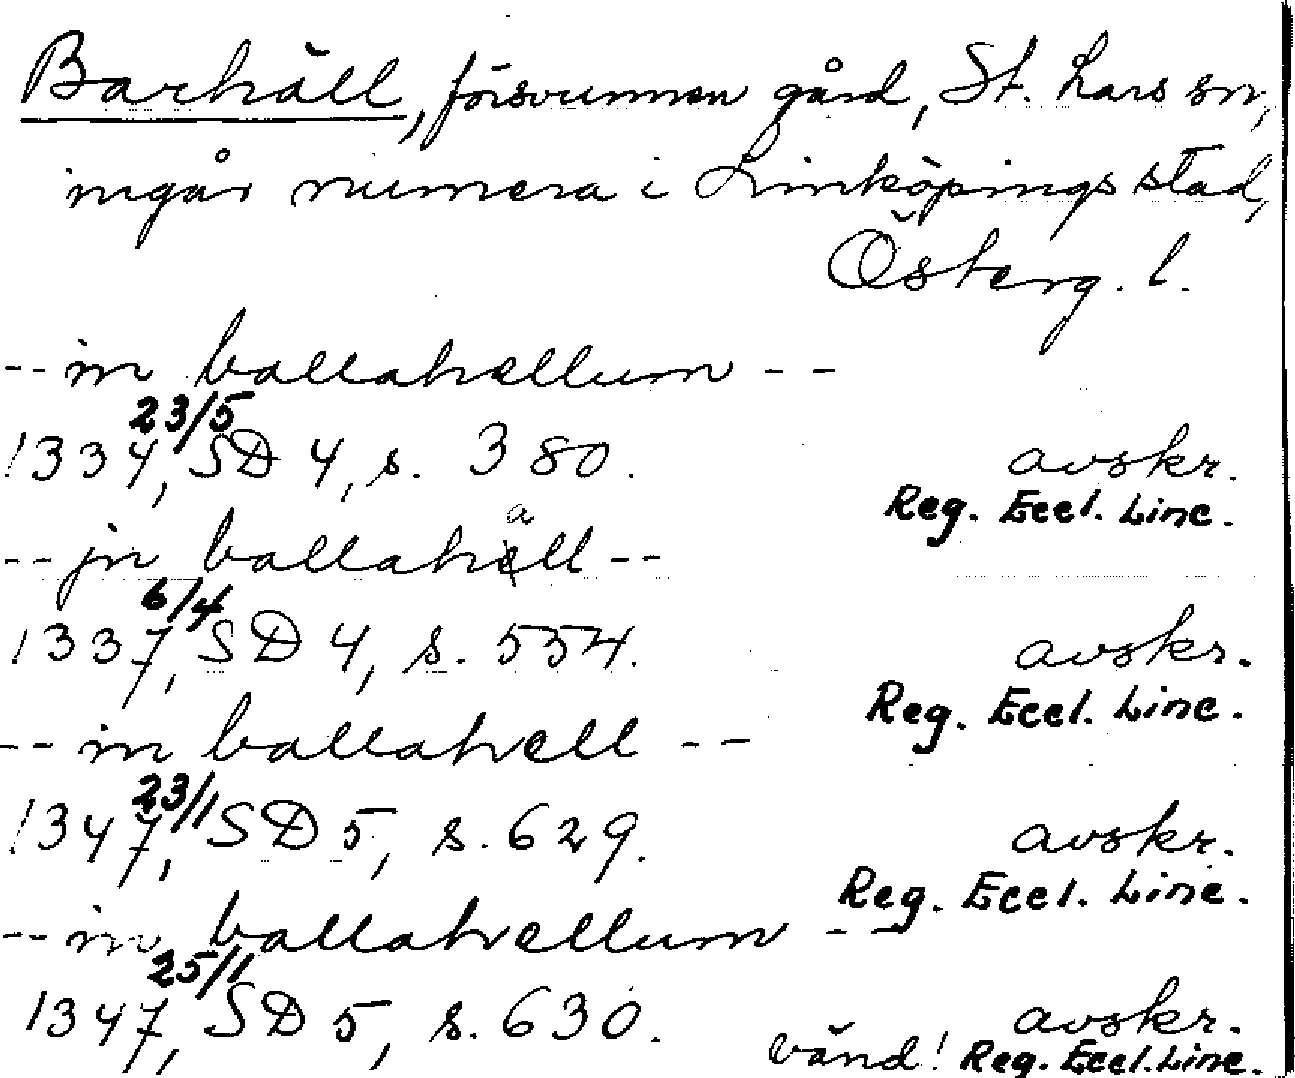 Barhäll, försvunnen gård, St. Lars sn,
ingår numera i Linköpings stad,
Österg. l.
-- in ballahellum --
23/5
1334, SD 4, s. 380. avskr.
Reg. Eccl. Linc.
a
-- jn ballahell --
6/4
1337, SD 4, s. 554. avskr.
Reg. Eccl. Linc.
-- in ballahell --
23/1
1347, SD 5, s. 629. avskr.
Reg. Eccl. Linc.
-- in ballahellum --
25/1
1347, SD 5, s. 630. avskr.
vänd! Reg. Eccl. Linc.